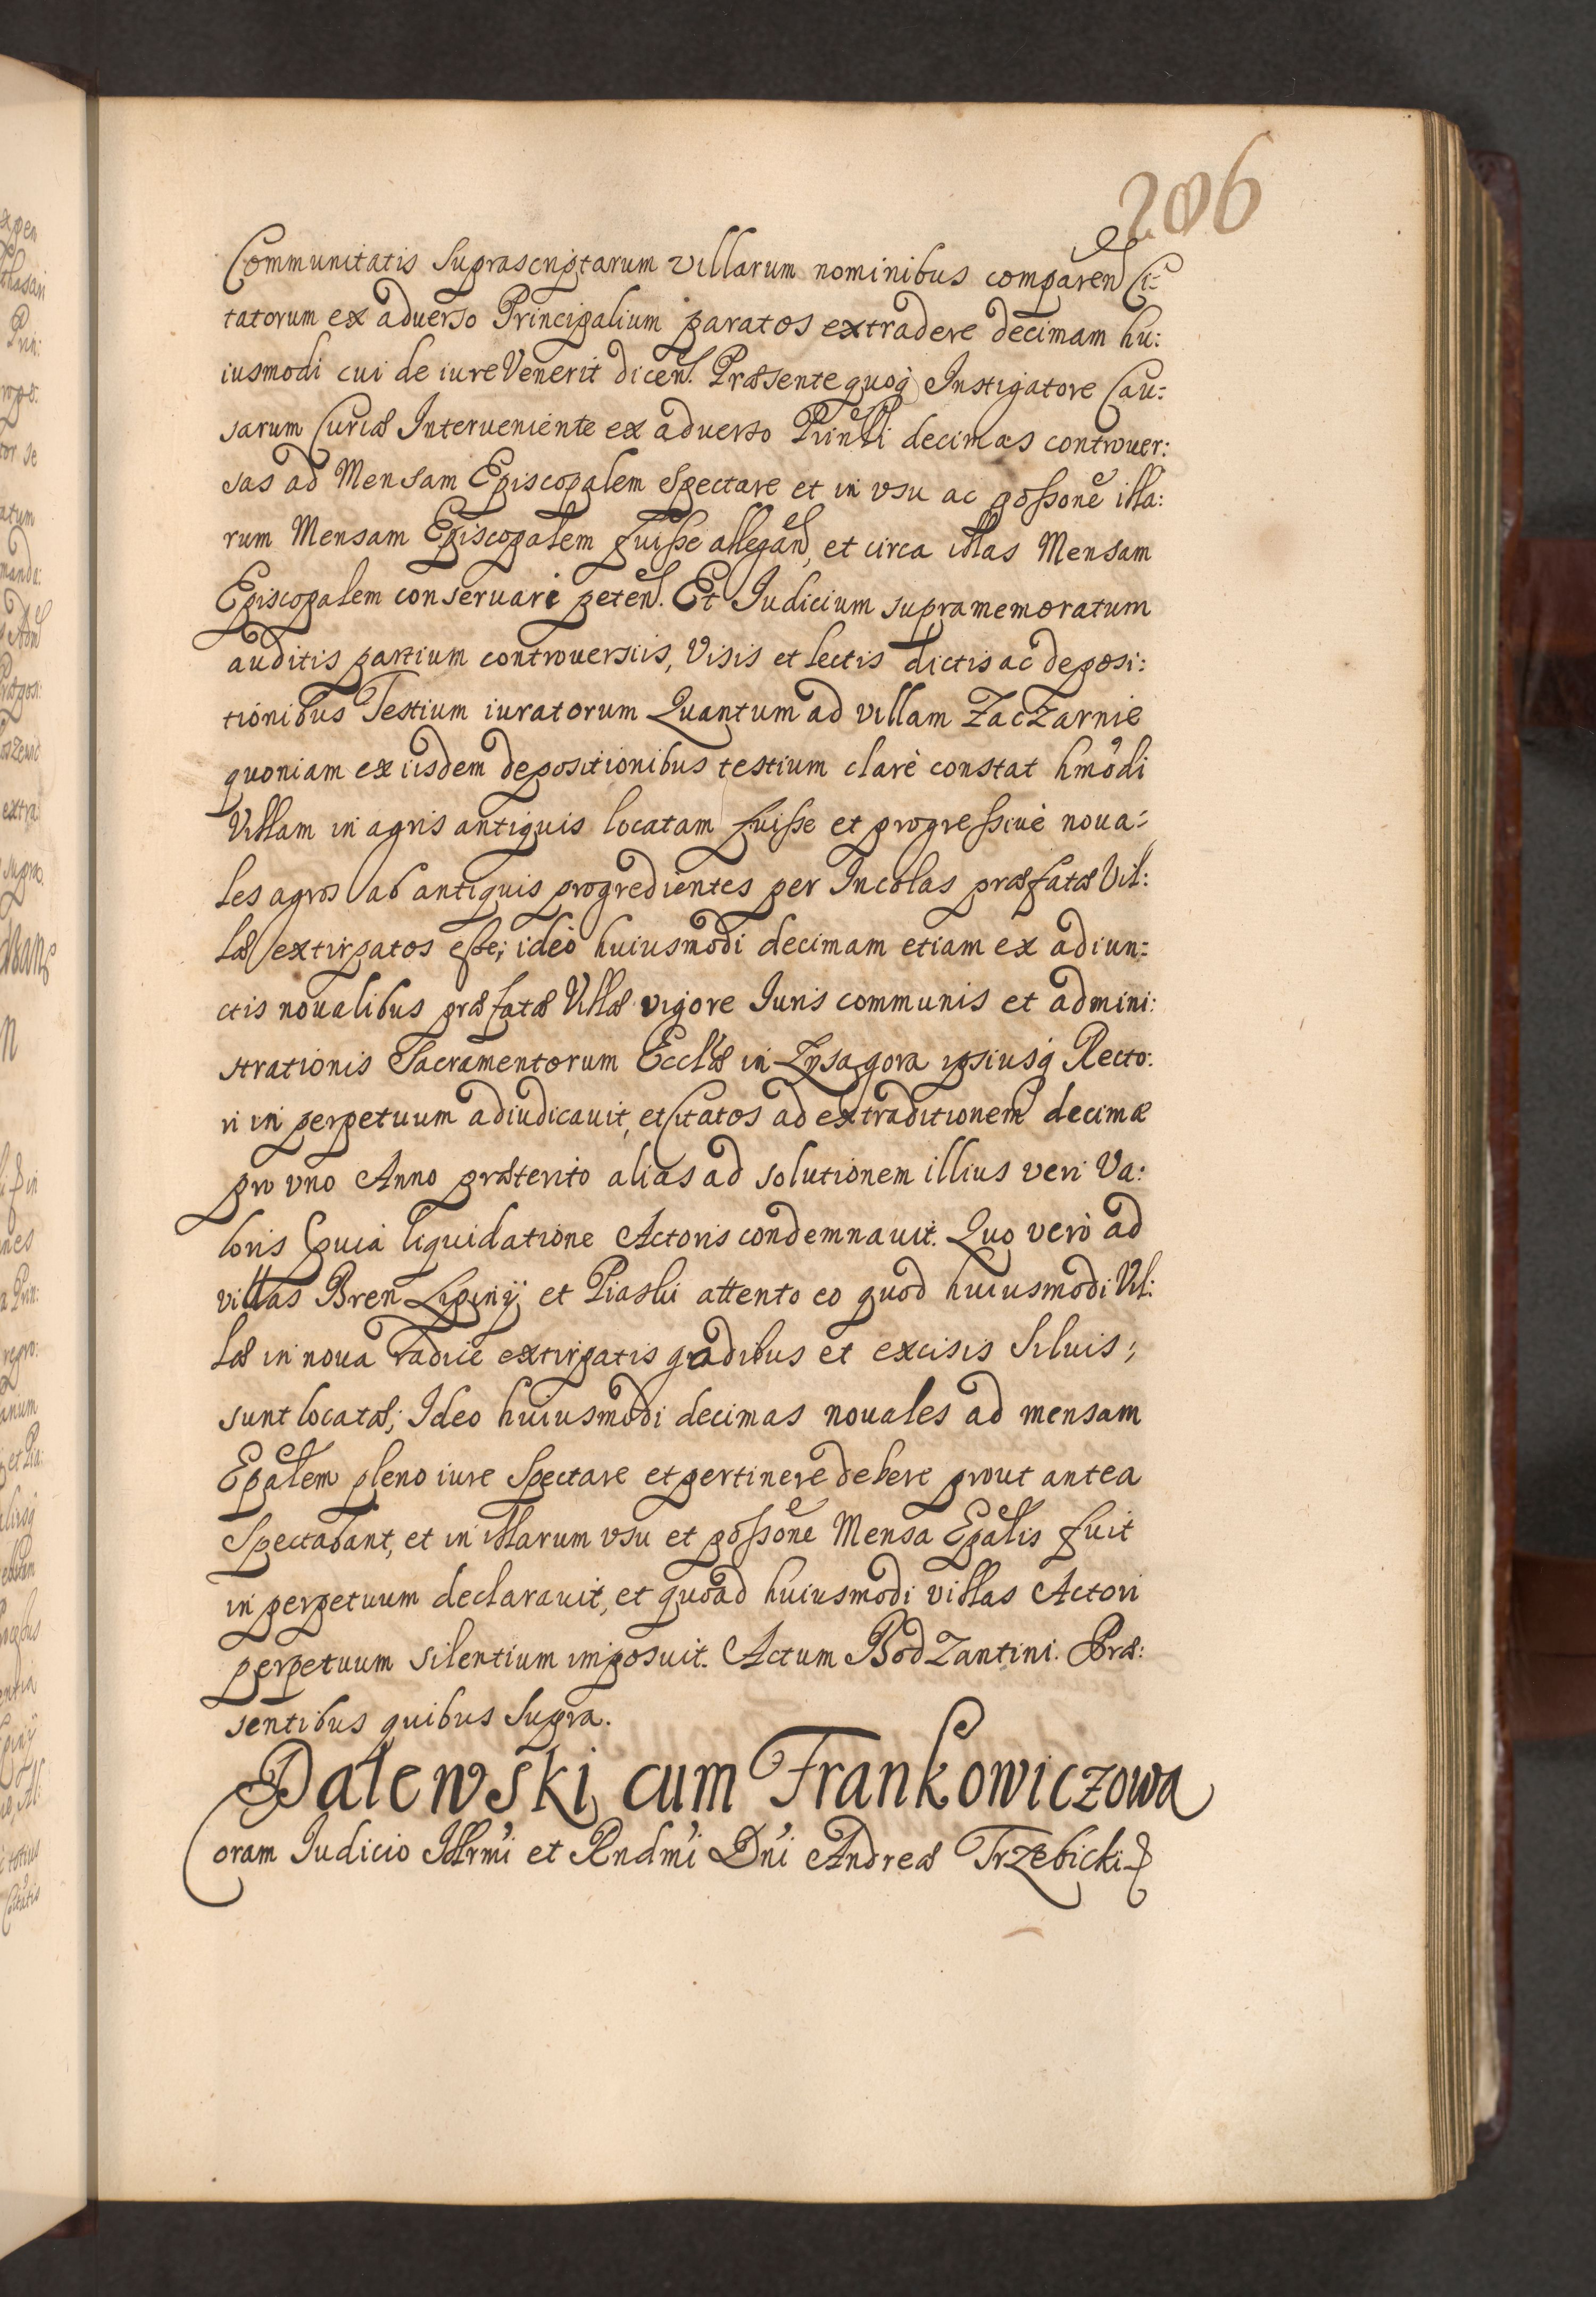 206
Communitatis suprascriptarum villarum nominibus comparen Ci=
tatorum ex adverso Principalium paratos extradere decimam hu:
iusmodi cui de iure Venerit dicen. Præsente quoq Instigatore Cau=
sarum Curiæ Interueniente ex aduerso Prinlli decimas controuer:
sas ad Mensam Episcopalem spectare et in vsu ac possone illa:
rum Mensam Episcopalem fuisse allegan, et circa illas Mensam
Episcopalem conseruari peten. Et Iudicium supramemoratum
auditis partium controuersiis, Visis et lectis dictis ac deposi:
tionibus Testium iuratorum Quantum ad villam Zaczarnie
quoniam ex iisdem depositionibus testium clarè constat hmodi
Villam in agris antiquis locatam fuisse et progressiuè noua=
les agros ab antiquis progredientes per Incolas præfatæ Vil:
læ extirpatos esse; ideò huiusmodi decimam etiam ex adiun=
ctis noualibus præfatæ Villæ vigore Iuris communis et admini:
strationis Sacramentorum Ecclæ in Lysagora ipsiusq Recto:
ri in perpetuum adiudicauit, et Citatos ad extraditionem decimæ
pro vno Anno præterito alias ad solutionem illius veri Va:
loris præuia liquidatione Actoris condemnauit. Quo verò ad
villas Bren Lipiny et Piaski attento eo quod huiusmodi Vil:
læ in noua radice extirpatis gradibus et excisis siluis;
sunt locatæ; Ideo huiusmodi decimas nouales ad mensam
Epalem pleno iure spectare et pertinere debere prout antea
Spectabant, et in illarum vsu et possone Mensa Epalis fuit
in perpetuum declarauit, et quoad huiusmodi villas Actori
perpetuum silentium imposuit. Actum Bodzantini. Præ:
sentibus quibus supra.
Dalewski cum Frankowiczowa
Coram Iudicio Illrmi et Rndmi Dni Andreæ Trzebicki